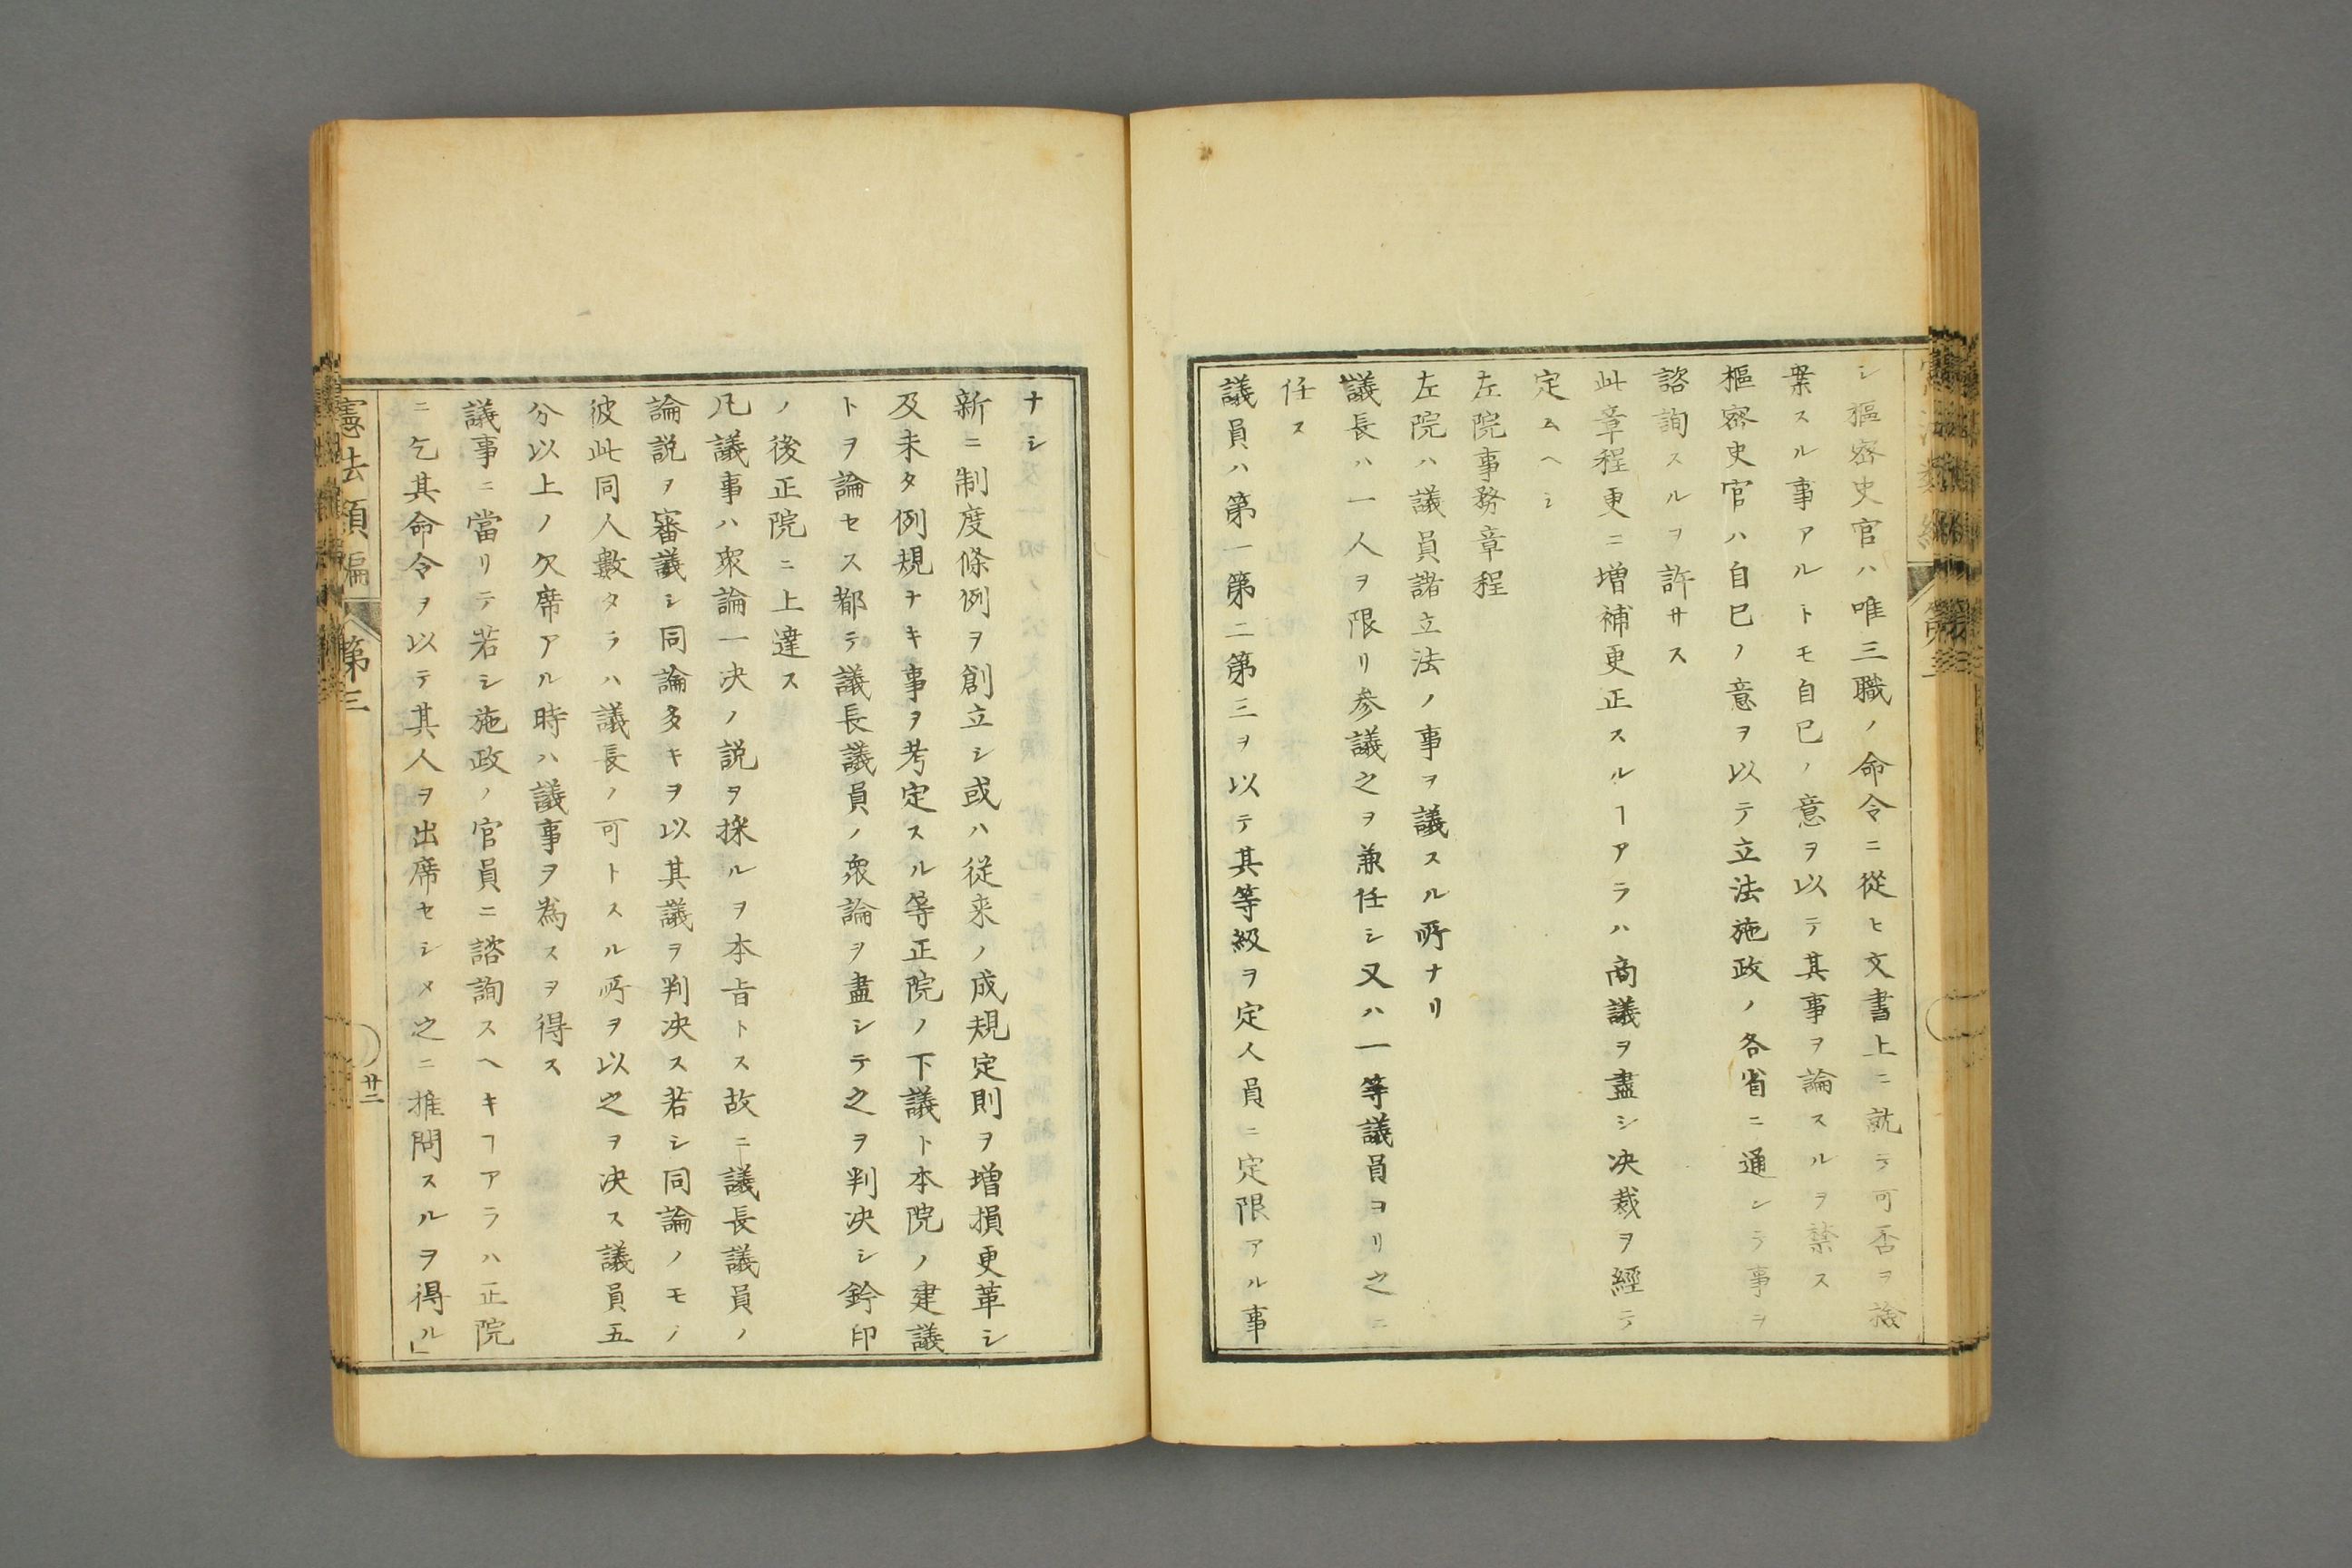 シ樞密史官ハ唯三職ノ命令ニ從ヒ文書上ニ就テ可否ヲ議
案スル事アルトモ自已ノ意ヲ以テ其事ヲ論スルヲ禁ス
樞密史官ハ自已ノ意ヲ以テ立法施政ノ各省ニ通シテ事ヲ
諮詢スルヲ許サス
此章程更ニ増補更正スルヿアラハ商議ヲ盡シ決裁ヲ經テ
定ムヘシ
左院事務章程
左院ハ議員諸立法ノ事ヲ議スル所ナリ
議長ハ一人ヲ限リ参議之ヲ兼任シ又ハ一等議員ヨリ之ニ
任ス
議員ハ第一第二第三ヲ以テ其等級ヲ定人員ニ定限アル事
ナシ
新ニ制度條例ヲ創立シ或ハ従来ノ成規定則ヲ増損更革シ
及未タ例規ナキ事ヲ考定スル等正院ノ下議ト本院ノ建議
トヲ論セス都テ議長議員ノ衆論ヲ盡シテ之ヲ判决シ鈐印
ノ後正院ニ上達ス
凡議事ハ衆論一决ノ説ヲ採ルヲ本旨トス故ニ議長議員ノ
論説ヲ審議シ同論多キヲ以其議ヲ判决ス若シ同論ノモノ
彼此同人數タラハ議長ノ可トスル所ヲ以之ヲ决ス議員五
分以上ノ欠席アル時ハ議事ヲ為スヲ得ス
議事ニ當リテ若シ施政ノ官員ニ諮詢スヘキヿアラハ正院
ニ乞其命令ヲ以テ其人ヲ出席セシメ之ニ推問スルヲ得ル」
憲法類編　第三　廿二